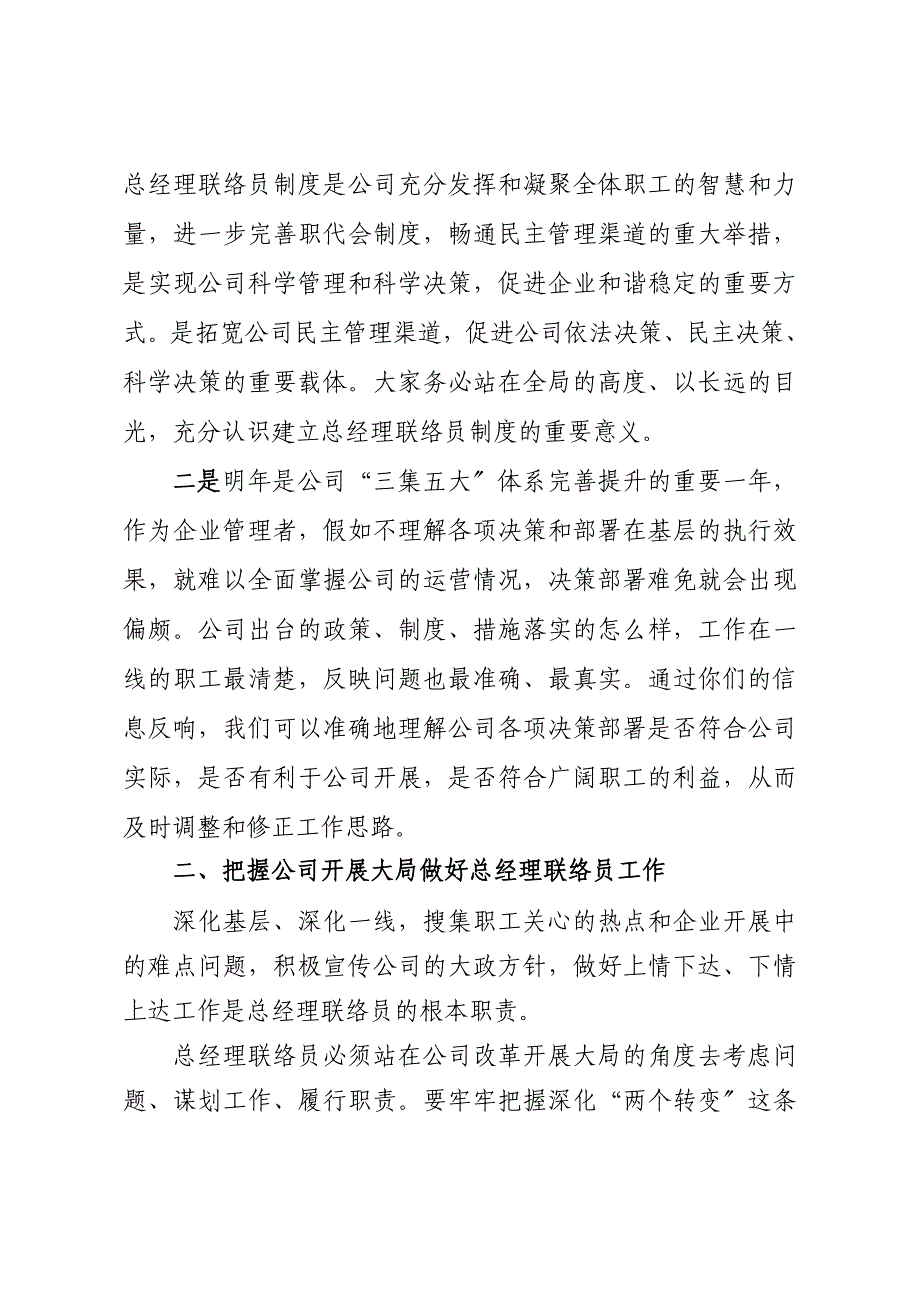 总经理联络员制度是公司充分发挥和凝聚全体职工的智慧和力
量，进一步完善职代会制度，畅通民主管理渠道的重大举措，
是实现公司科学管理和科学决策，促进企业和谐稳定的重要方
式。是拓宽公司民主管理渠道，促进公司依法决策、民主决策、
科学决策的重要载体。大家务必站在全局的高度、以长远的目
光，充分认识建立总经理联络员制度的重要意义。
二是明年是公司“三集五大〞体系完善提升的重要一年，
作为企业管理者，假如不理解各项决策和部署在基层的执行效
果，就难以全面掌握公司的运营情况，决策部署难免就会出现
偏颇。公司出台的政策、制度、措施落实的怎么样，工作在一
线的职工最清楚，反映问题也最准确、最真实。通过你们的信
息反响，我们可以准确地理解公司各项决策部署是否符合公司
实际，是否有利于公司开展，是否符合广阔职工的利益，从而
及时调整和修正工作思路。
二、把握公司开展大局做好总经理联络员工作
深化基层、深化一线，搜集职工关心的热点和企业开展中
的难点问题，积极宣传公司的大政方针，做好上情下达、下情
上达工作是总经理联络员的根本职责。
总经理联络员必须站在公司改革开展大局的角度去考虑问
题、谋划工作、履行职责。要牢牢把握深化“两个转变〞这条